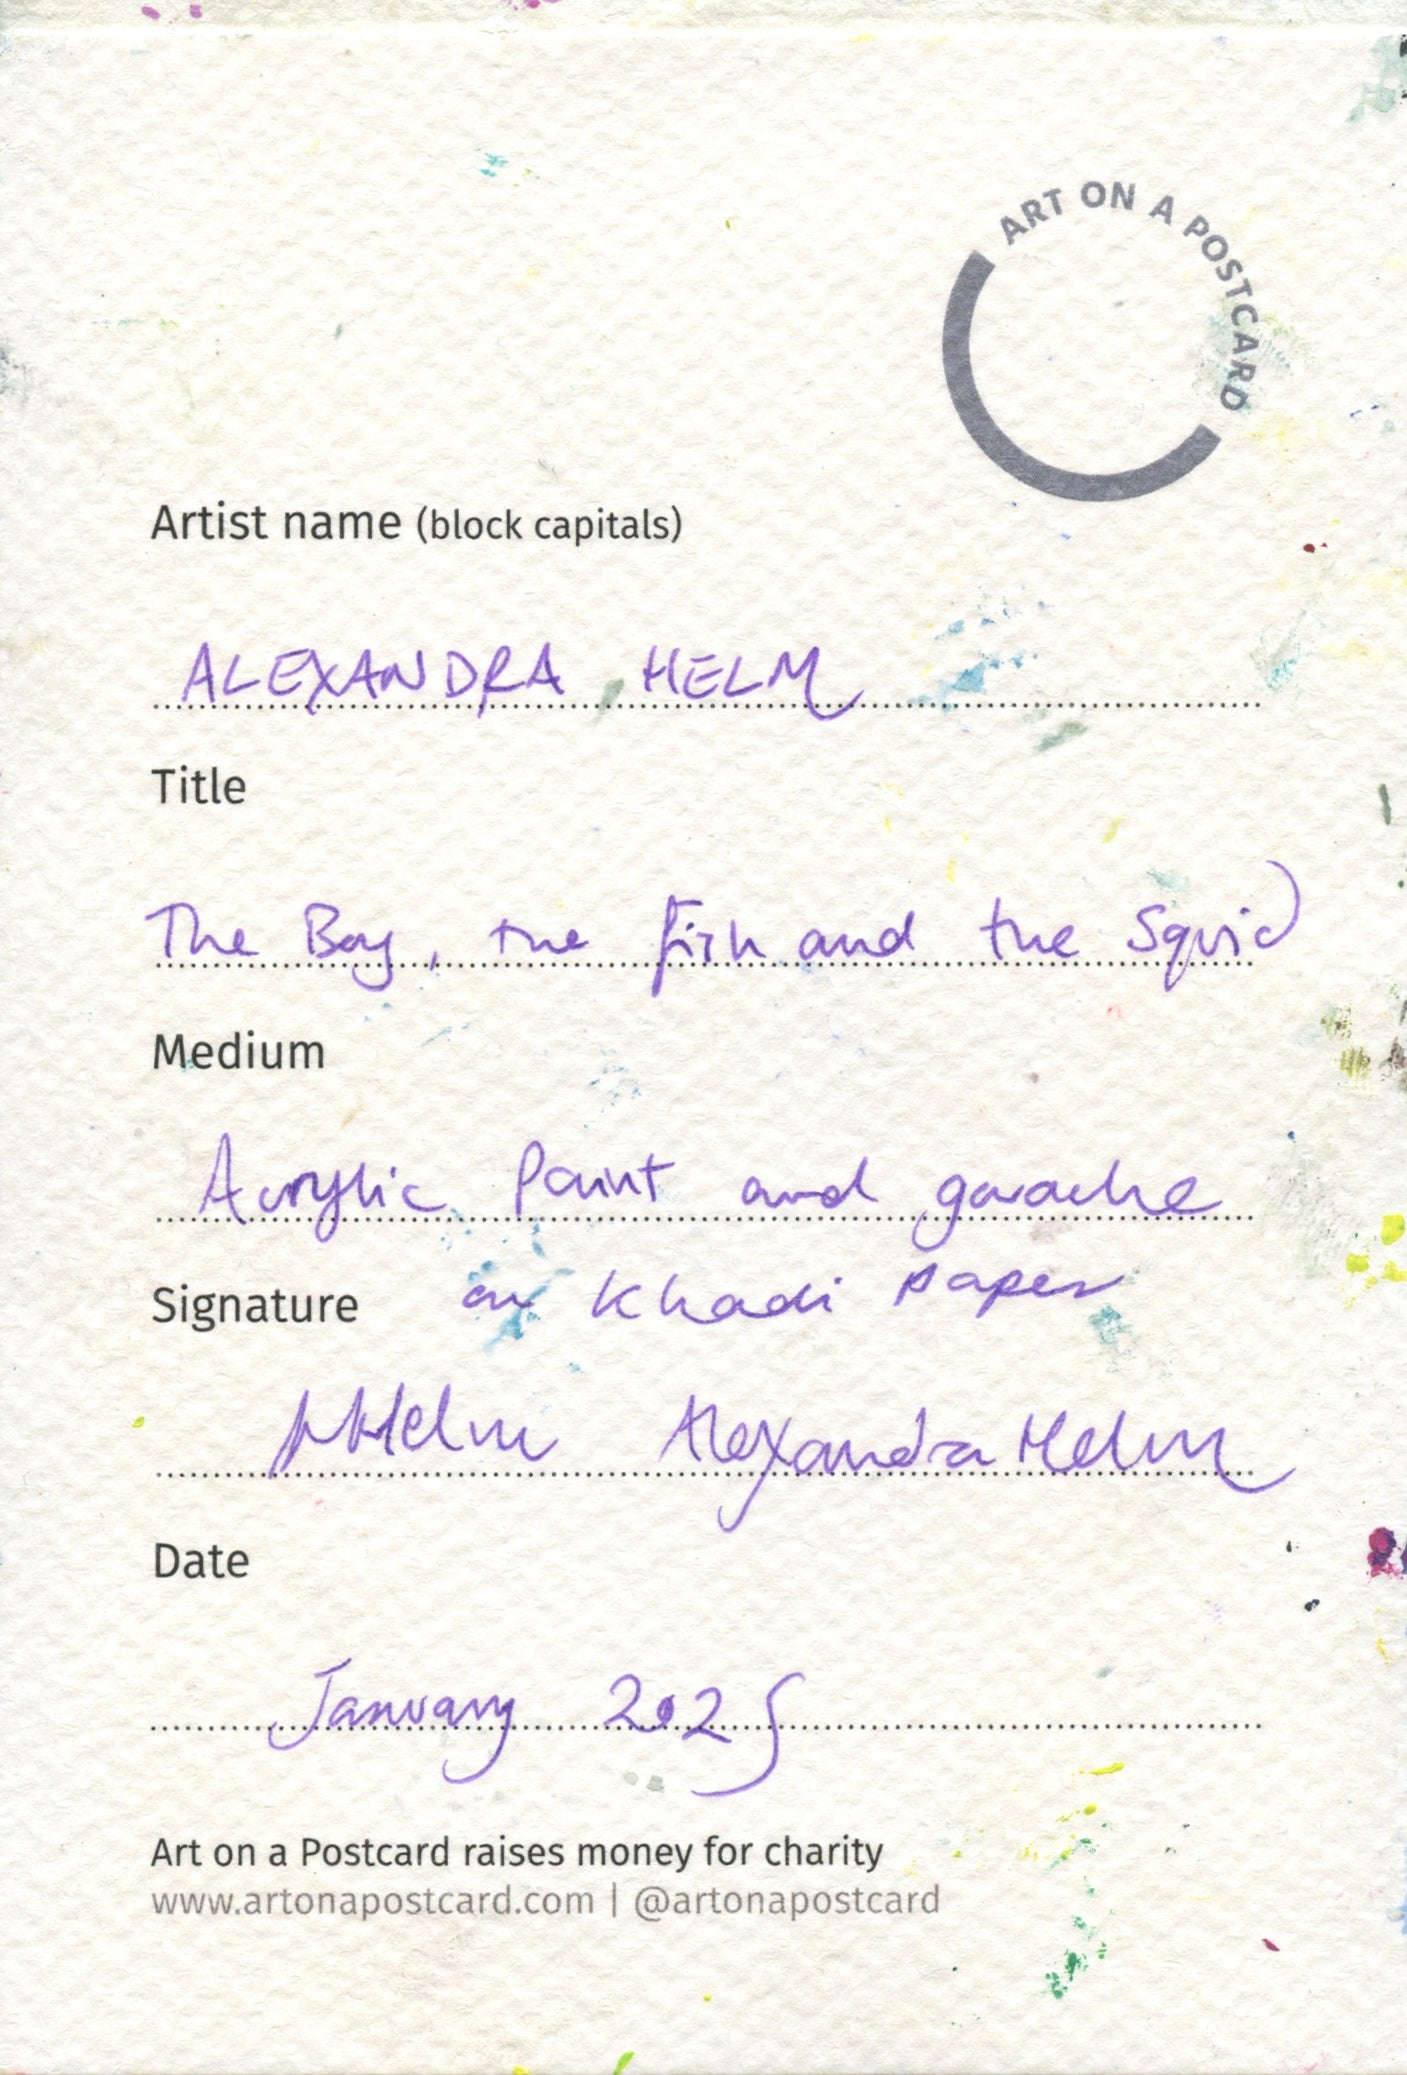 ART ON A POSTCARD
Artist name (block capitals)
ALEXANDRA HELM
Title
The Boy, the fish and the Squid
Medium
Acrylic Paint and gouache
Signature
on Khadi paper
AHelm Alexandra Helm
Date
January 2025
Art on a Postcard raises money for charity
www.artonapostcard.com | @artonapostcard